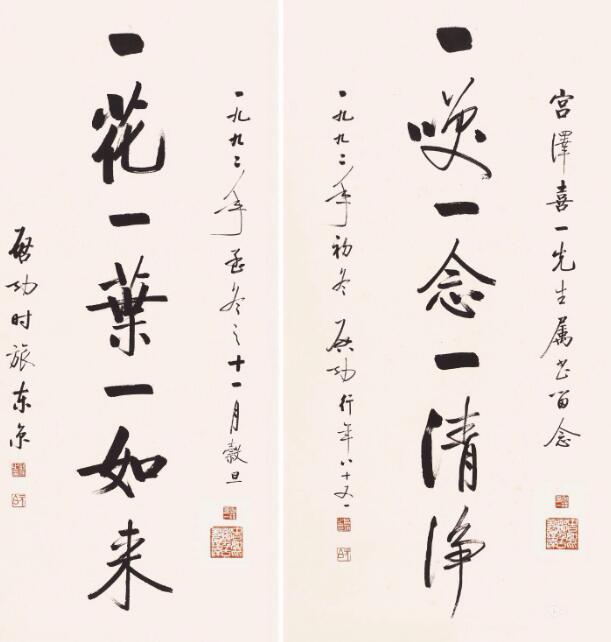 宫澤喜一先生属书留念
一咲一念一清净
一九九二年初冬 啓功行年八十又一
一九九二年孟冬之十一月穀旦
一花一葉一如来
啓功时旅东京